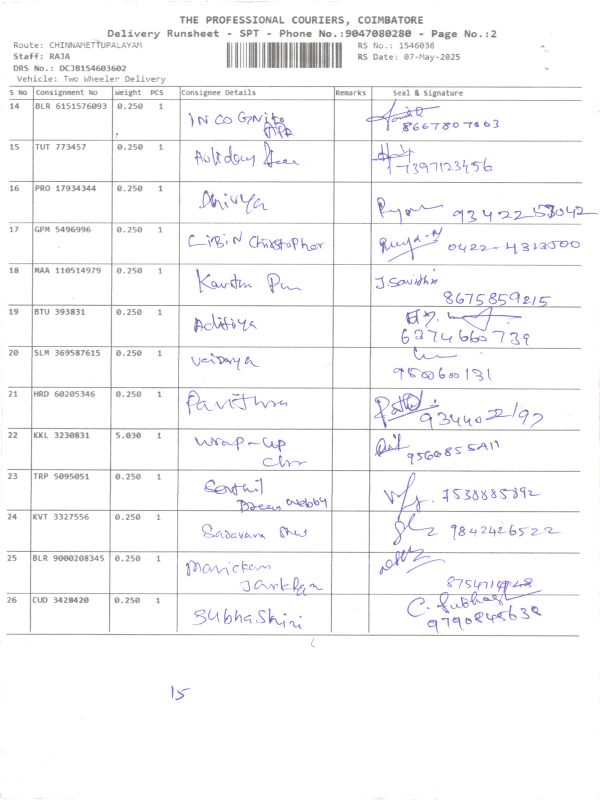 THE PROFESSIONAL COURIERS, COIMBATORE
Delivery Runsheet - SPT - Phone No.:9047080280 - Page No.:2
Route: CHINNAMETTUPALAYAM RS No.: 1546036
Staff: RAJA RS Date: 07-May-2025
DRS No.: DCJB154603602
Vehicle: Two Wheeler Delivery
S No Consignment No Weight PCS Consignee Details Remarks Seal & Signature
14 BLR 6151576093 0.250 1 INCOGNito
8667807663
15 TUT 773457 0.250 1
7397123456
16 PRO 17934344 0.250 1
93422 53042
17 GPM 5496996 0.250 1 LIBIN Christopher 0422-4313500
18 MAA 110514979 0.250 1 J. Savithri
8675859215
19 BTU 393831 0.250 1 Aditiya
6374660739
20 SLM 369587615 0.250 1
950060131
21 HRD 60205346 0.250 1 Pavithra
22 KKL 3230831 5.030 1 wrap-up
23 TRP 5095051 0.250 1 Senthil 7530885892
24 KVT 3327556 0.250 1 9842426522
25 BLR 9000208345 0.250 1 Manickam
26 CUD 3428420 0.250 1 SUbhaShini C. Subhas
9790848630
15